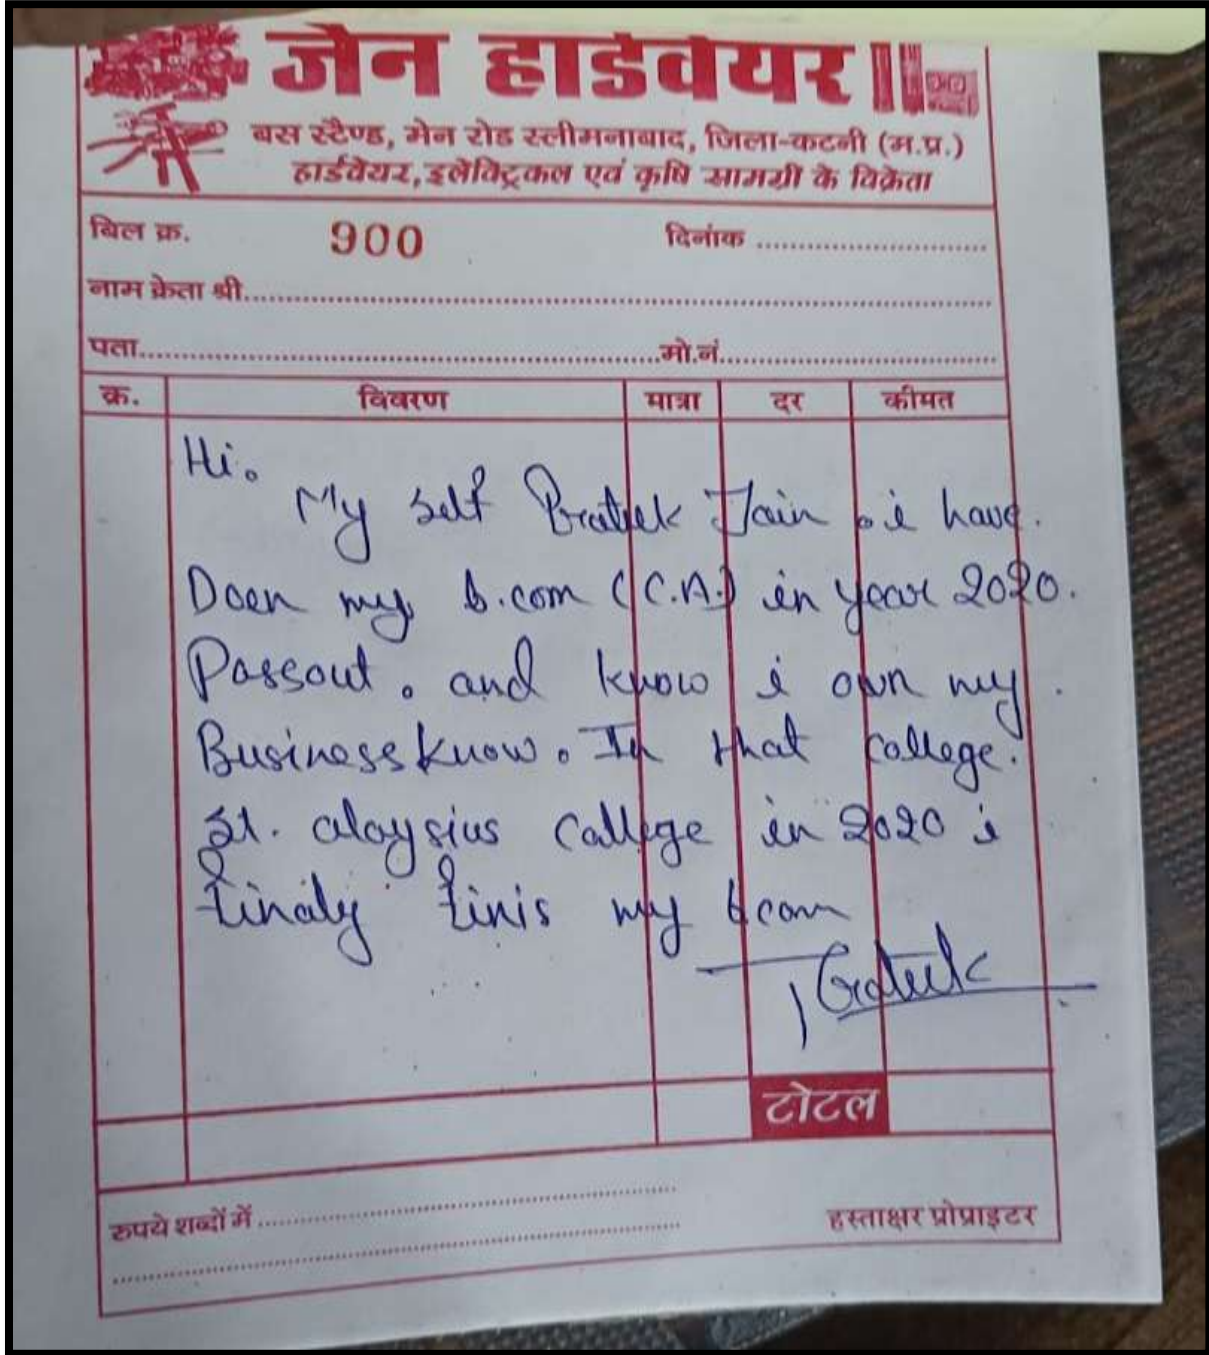 जैन हार्डवेयर
बस स्टैण्ड, मेन रोड स्लीमनाबाद, जिला-कटनी (म.प्र.)
हार्डवेयर, इलेक्ट्रिकल एवं कृषि सामग्री के विक्रेता
बिल क्र. 900 दिनांक
नाम क्रेता श्री
पता मो.नं.
क्र. विवरण मात्रा दर कीमत
Hi.
My self Prateek Jain . i have.
Doen my b.com (C.A.) in year 2020.
Passout. and know i own my.
Business know. In that college.
St. aloysius college in 2020 i
finaly finis my bcom
Prateek
टोटल
रुपये शब्दों में
हस्ताक्षर प्रोप्राइटर